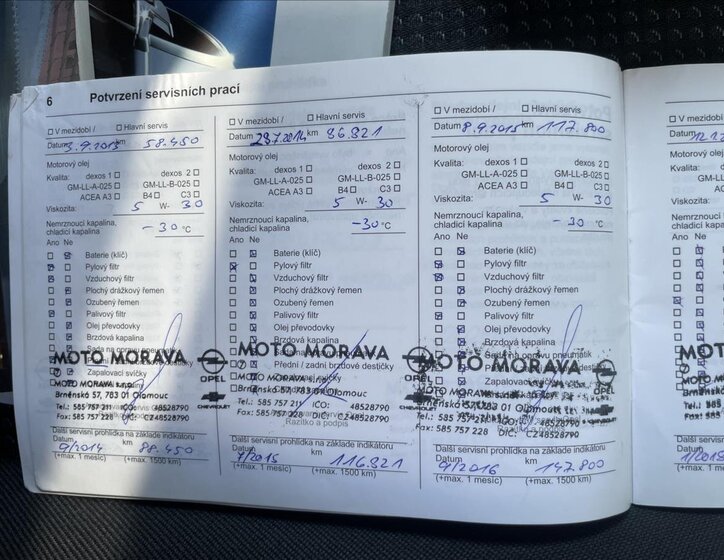 6 Potvrzení servisních prací
☐ V mezidobí / ☐ Hlavní servis
Datum 3.9.2013 km 58.450
Motorový olej
Kvalita: dexos 1 ☐ dexos 2 ☐
GM-LL-A-025 ☐ GM-LL-B-025 ☐
ACEA A3 ☐ B4 ☐ C3 ☐
Viskozita: 5 W- 30
Nemrznoucí kapalina,
chladicí kapalina -30 °C
Ano Ne
Baterie (klíč)
Pylový filtr
Vzduchový filtr
Plochý drážkový řemen
Ozubený řemen
Palivový filtr
Olej převodovky
Brzdová kapalina
Sada na opravu pneumatik
Zapalovací svíčky
MOTO MORAVA
OPEL
MOTO MORAVA s.r.o.
Brněnská 57, 783 01 Olomouc
CHEVROLET
Tel.: 585 757 211 IČO: 48528790
Fax: 585 757 228 DIČ: CZ48528790
Další servisní prohlídka na základě indikátoru
Datum km
9/2014 88.450
(+max. 1 měsíc) (+max. 1500 km)
☐ V mezidobí / ☐ Hlavní servis
Datum 29.7.2014 km 86.821
Motorový olej
Kvalita: dexos 1 ☐ dexos 2 ☐
GM-LL-A-025 ☐ GM-LL-B-025 ☐
ACEA A3 ☐ B4 ☐ C3 ☐
Viskozita: 5 W- 30
Nemrznoucí kapalina,
chladicí kapalina -30 °C
Ano Ne
Baterie (klíč)
Pylový filtr
Vzduchový filtr
Plochý drážkový řemen
Ozubený řemen
Palivový filtr
Olej převodovky
Brzdová kapalina
MOTO MORAVA
Přední / zadní brzdové destičky
OPEL
MOTO MORAVA s.r.o.
Brněnská 57, 783 01 Olomouc
CHEVROLET
Tel.: 585 757 211 IČO: 48528790
Fax: 585 757 228 DIČ: CZ48528790
Razítko a podpis
Další servisní prohlídka na základě indikátoru
Datum km
7/2015 116.821
(+max. 1 měsíc) (+max. 1500 km)
☐ V mezidobí / ☐ Hlavní servis
Datum 8.9.2015 km 117.800
Motorový olej
Kvalita: dexos 1 ☐ dexos 2 ☐
GM-LL-A-025 ☐ GM-LL-B-025 ☐
ACEA A3 ☐ B4 ☐ C3 ☐
Viskozita: 5 W- 30
Nemrznoucí kapalina,
chladicí kapalina -30 °C
Ano Ne
Baterie (klíč)
Pylový filtr
Vzduchový filtr
Plochý drážkový řemen
Ozubený řemen
Palivový filtr
Olej převodovky
Brzdová kapalina
Sada na opravu pneumatik
MOTO MORAVA
Zapalovací
OPEL
MOTO MORAVA
Brněnská 57, 783 01 Olomouc
Tel.: 585 757 211 IČO: 48528790
Fax: 585 757 228 DIČ: CZ48528790
Další servisní prohlídka na základě indikátoru
Datum km
9/2016 147.800
(+max. 1 měsíc) (+max. 1500 km)
☐ V mez
Datum
Motorový
Kvalita:
Viskozita:
Nemrznou
chladicí ka
Ano Ne
MOTO
MOTO MO
Brněnská
Tel.: 585
Fax: 585
Další servi
Datum
(+max. 1